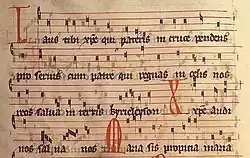 Laus tibi xpe qui pateris in cruce pendens
pro seruis cum patre qui regnas in celis nos
reos salua in terris kyrieleyson xpe audi
nos salua nos Maria sis propicia maria